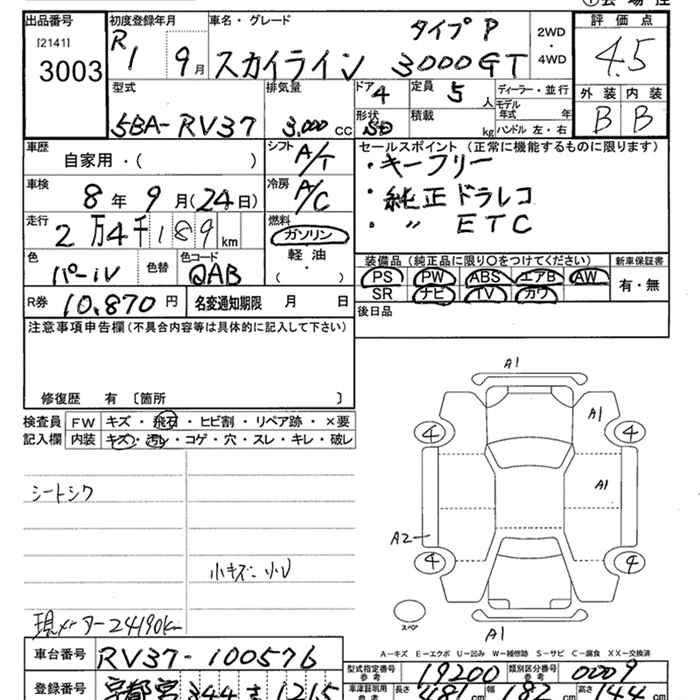 出品番号
[2141]
3003
初度登録年月
R1 9月
車名・グレード
タイプP
スカイライン 3000GT
2WD
・
4WD
評価点
4.5
外装 内装
B B
型式
5BA-RV37
排気量
3,000 cc
ドア 4
形状 SD
定員 5 人
積載 kg
ディーラー・並行
モデル年式 年
ハンドル 左・右
車歴
自家用・( )
シフト
A/T
車検
8年 9月(24日)
冷房
A/C
走行
2万4千189km
燃料
ガソリン
軽油
( ・ )
色
パール
色替
色コード
QAB
R券 10,870円
名変通知期限 月 日
セールスポイント(正常に機能するものに限ります)
・キーフリー
・純正ドラレコ
・〃 ETC
装備品(純正品に限り〇をつけてください)
PS PW ABS エアB AW
SR ナビ TV カワ
新車保証書
有・無
後日品
注意事項申告欄(不具合内容等は具体的に記入して下さい)
修復歴 有 〔箇所 〕
検査員記入欄
FW キズ・飛石・ヒビ割・リペア跡・×要
内装 キズ・汚レ・コゲ・穴・スレ・キレ・破レ
シートシワ
小キズ・小U
現メーター24190km
A1
A1
4 4
A1
A2
4 4
スペア
A1
A-キズ E-エクボ U-凹み W-補修跡 S-サビ C-腐食 XX-交換済
車台番号 RV37-100576
型式指定番号 参考 19200
類別区分番号 参考 0009
登録番号 京都 344 1215
車庫証明用 参考 長さ 481 幅 182 高さ 144